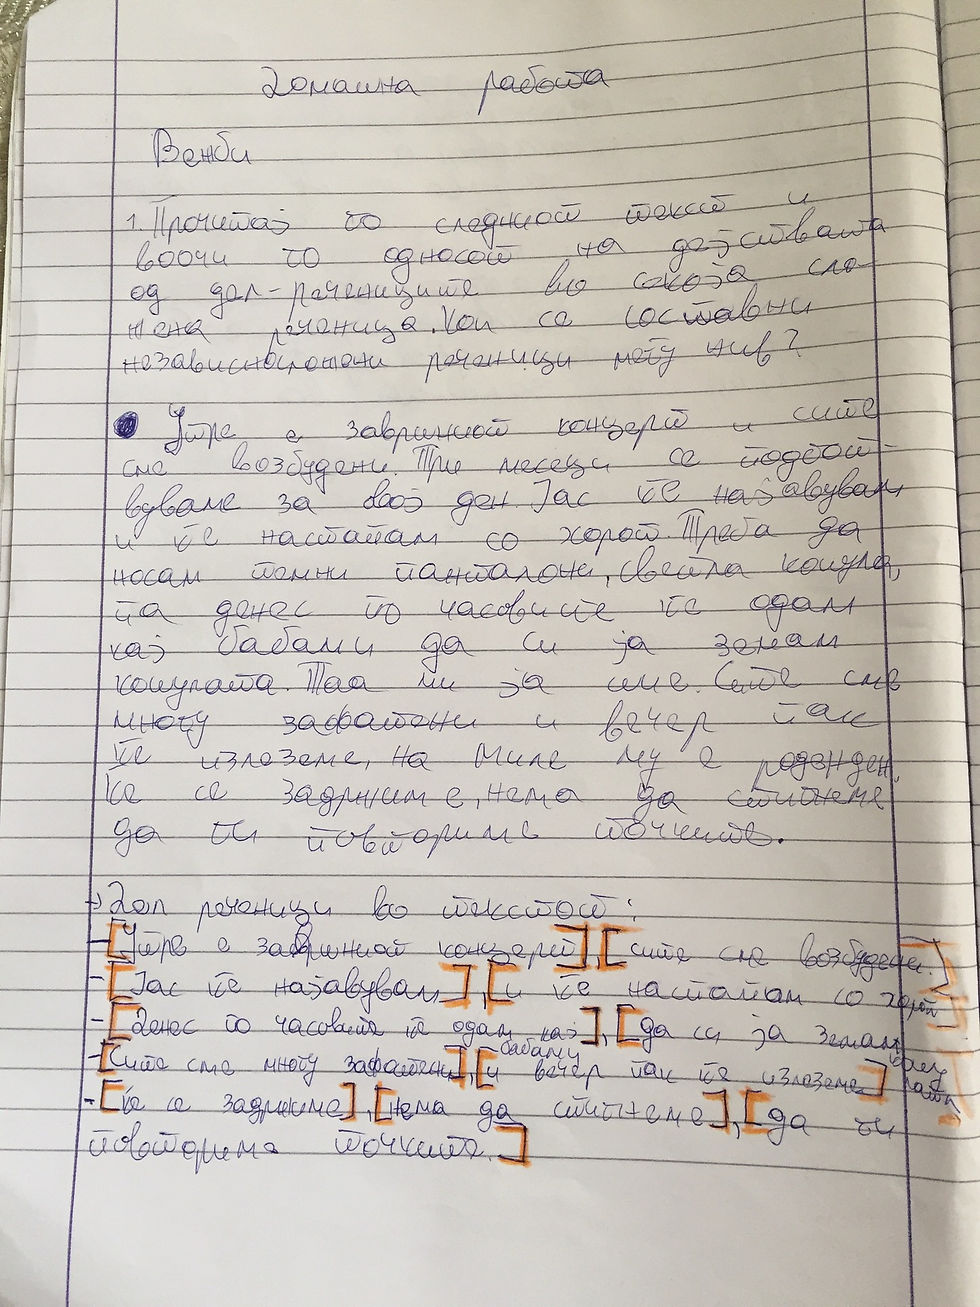 Домашна работа
Вежби
1. Прочитај го следниот текст и
воочи го односот на дејствата
од дел-речениците во секоја сло-
жена реченица. Кои се составни
независносложени реченици меѓу нив?
Утре е завршниот концерт и сите
сме возбудени. Три месеци се подгот-
вуваме за овој ден. Јас ќе најавувам
и ќе настапам со хорот. Треба да
носам темни панталони, светла кошула,
па денес по часовите ќе одам
кај баба ми да си ја земам
кошулата. Таа ми ја ши. Сите сме
многу зафатени и вечер пак
ќе излеземе, на Миле му е роденден.
Ќе се задржиме, нема да стигнеме
да ги повториме точките.
→ Дел реченици во текстот:
- [Утре е завршниот концерт], [сите сме возбудени.]
- [Јас ќе најавувам], [и ќе настапам со хорот]
- [Денес по часовите ќе одам кај], [да си ја земам
бабами
- [Сите сме многу зафатени], [и вечер пак ќе излеземе]
- [Ќе се задржиме], [нема да стигнеме], [да ги
повториме точките.]